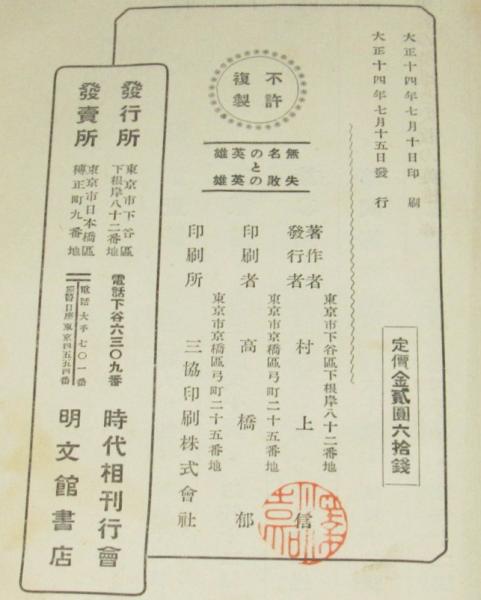 大正十四年七月十日印刷
大正十四年七月十五日發行
定價金貳圓六拾錢
不許
複製
無名の英雄
と
失敗の英雄
東京市下谷區下根岸八十二番地
著作者
發行者
村上信
東京市京橋區弓町二十五番地
印刷者 高橋郁
東京市京橋區弓町二十五番地
印刷所 三協印刷株式會社
發行所
東京市下谷區
下根岸八十二番地
電話下谷六三〇九番
時代相刊行會
發賣所
東京市日本橋區
榑正町九番地
電話大手七〇一番
振替口座東京四五五四番
明文館書店